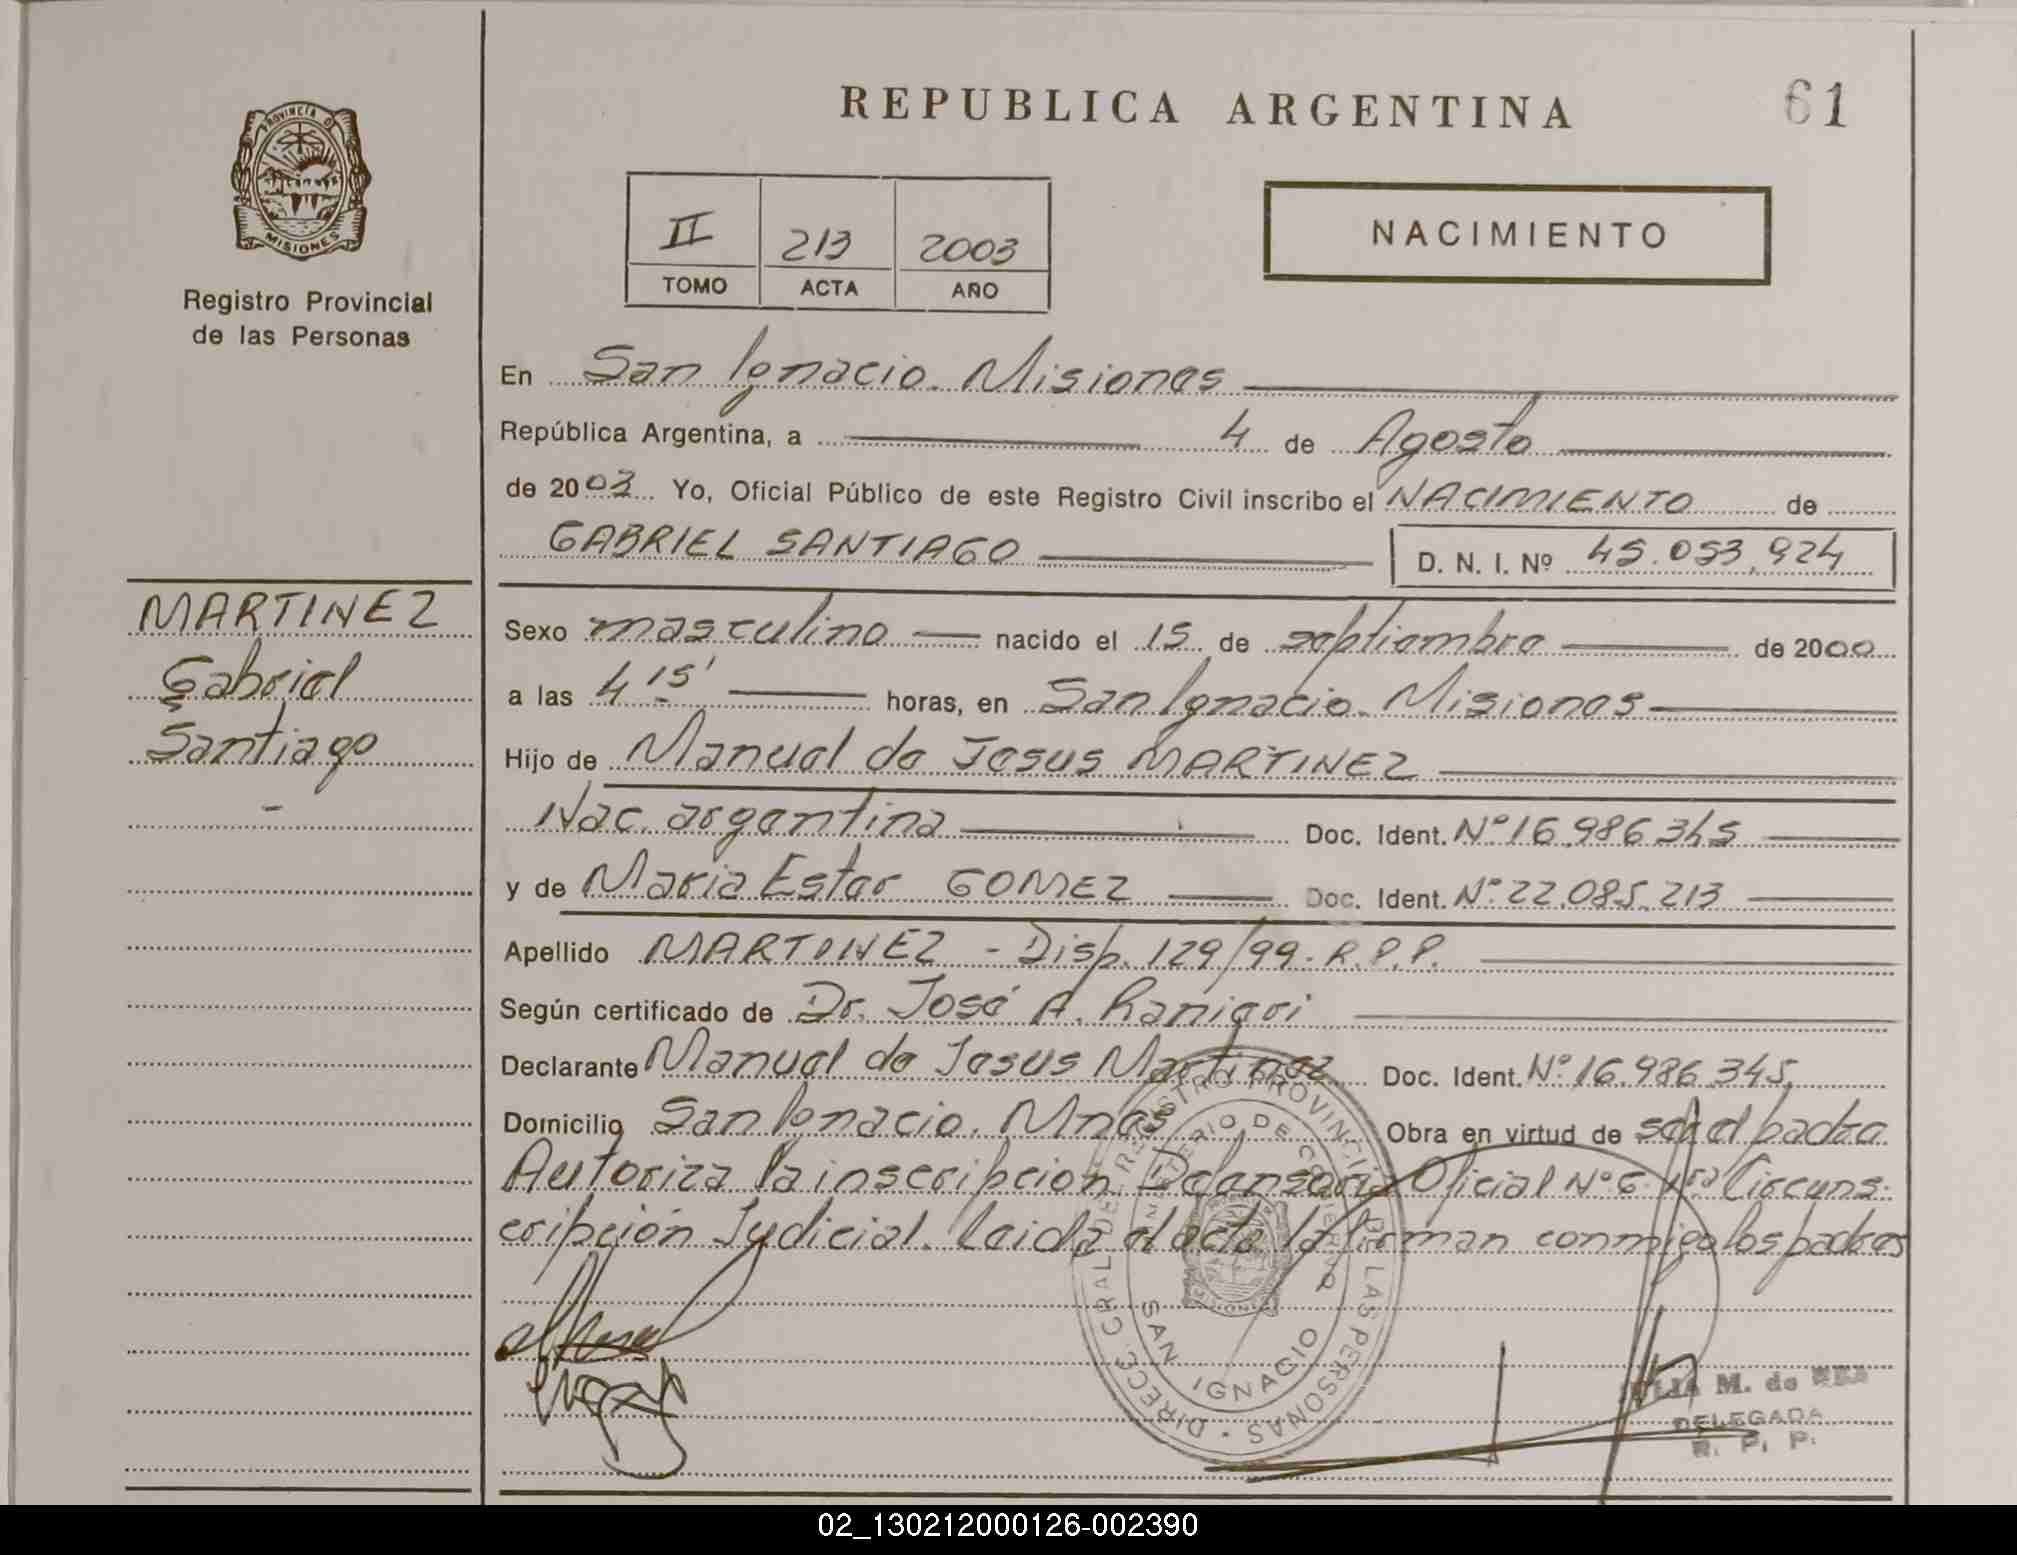 REPUBLICA ARGENTINA
61
PROVINCIA D
MISIONES
Registro Provincial
de las Personas
II 213 2003
TOMO ACTA AÑO
NACIMIENTO
En San Ignacio. Misiones
República Argentina, a 4 de Agosto
de 2003 Yo, Oficial Público de este Registro Civil inscribo el NACIMIENTO de
GABRIEL SANTIAGO
D. N. I. Nº 45.053.924
MARTINEZ
Gabriel
Santiago
Sexo masculino nacido el 15 de septiembre de 2000
a las 4 15' horas, en San Ignacio. Misiones
Hijo de Manuel de Jesus MARTINEZ
Nac. argentina Doc. Ident. Nº 16.986.345
y de Maria Ester GOMEZ Doc. Ident. Nº 22.085.213
Apellido MARTINEZ - Disp. 129/99. R.P.P.
Según certificado de Dr. José A. Ranieri
Declarante Manuel de Jesus Martinez Doc. Ident. Nº 16.986.345
Domicilio San Ignacio. Mnes Obra en virtud de ser el padre.
Autoriza la inscripción Defensoría Oficial Nº 6 1ra Circuns-
cripción Judicial. Leida el acta la firman conmigo los padres
DIRECC. GRAL. DEL REGISTRO PROVINCIAL DE LAS PERSONAS
MINISTERIO DE GOBIERNO
MISIONES
SAN IGNACIO
M. de
DELEGADA
R. P. P.
02_130212000126-002390